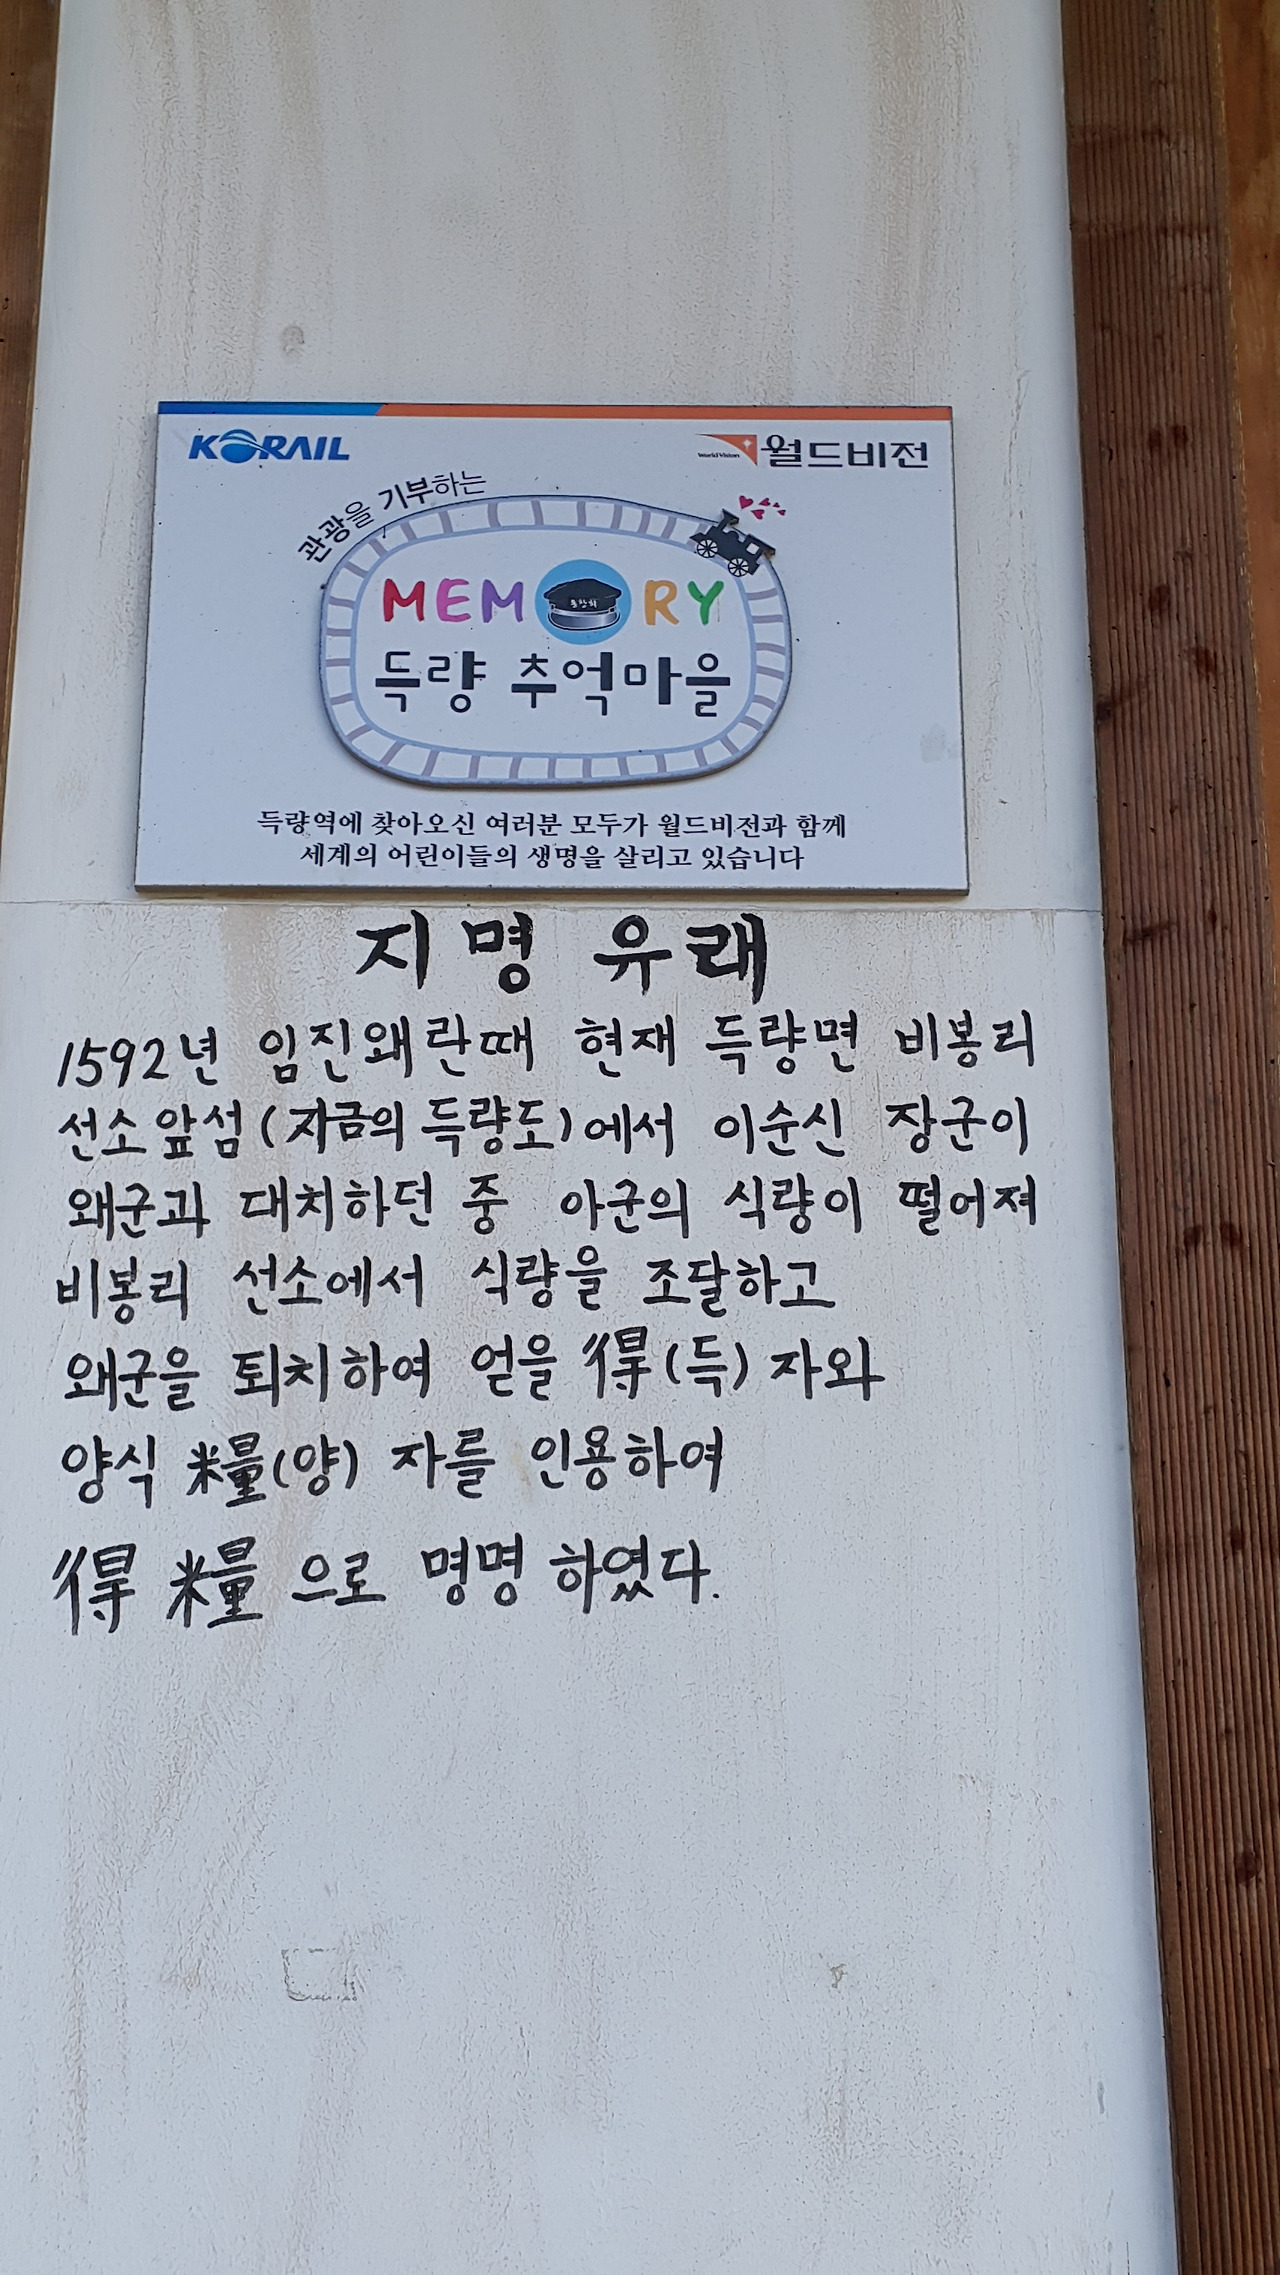 KORAIL
World Vision 월드비전
관광을 기부하는
MEMORY
득량 추억마을
득량역에 찾아오신 여러분 모두가 월드비전과 함께
세계의 어린이들의 생명을 살리고 있습니다
지명 유래
1592년 임진왜란때 현재 득량면 비봉리
선소앞섬(지금의 득량도)에서 이순신 장군이
왜군과 대치하던 중 아군의 식량이 떨어져
비봉리 선소에서 식량을 조달하고
왜군을 퇴치하여 얻을 得(득) 자와
양식 糧(양) 자를 인용하여
得 糧 으로 명명 하였다.